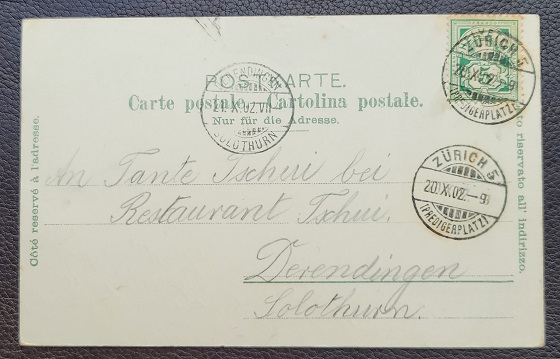 POSTKARTE.
Carte postale. Cartolina postale.
Nur für die Adresse.
Côté réservé à l'adresse.
riservato all' indirizzo.
ZÜRICH 5
20.X.02.-9
(PREDIGERPLATZ)
ZÜRICH 5
20.X.02.-9
(PREDIGERPLATZ)
DERENDINGEN
21.X.02.VII
SOLOTHURN
An Tante Tschui bei
Restaurant Tschui.
Derendingen
Solothurn.